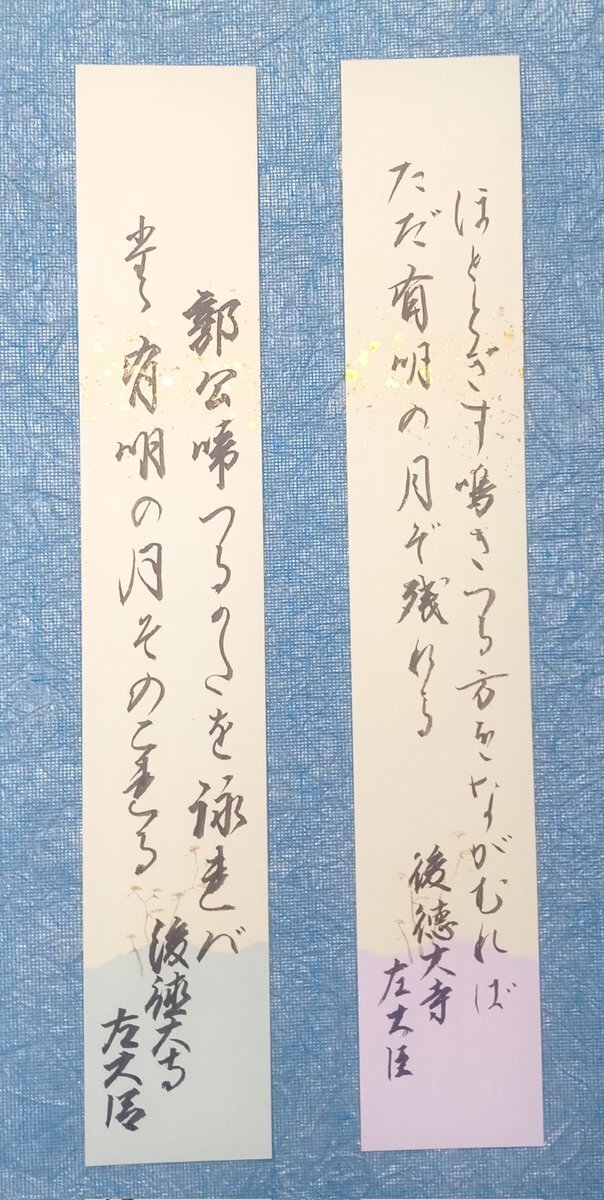 ほととぎす鳴きつる方をながむれば
ただ有明の月ぞ残れる
後徳大寺
左大臣
郭公啼つるかたを詠連バ
堂ゝ有明の月そのこ連る
後徳大寺
左大臣